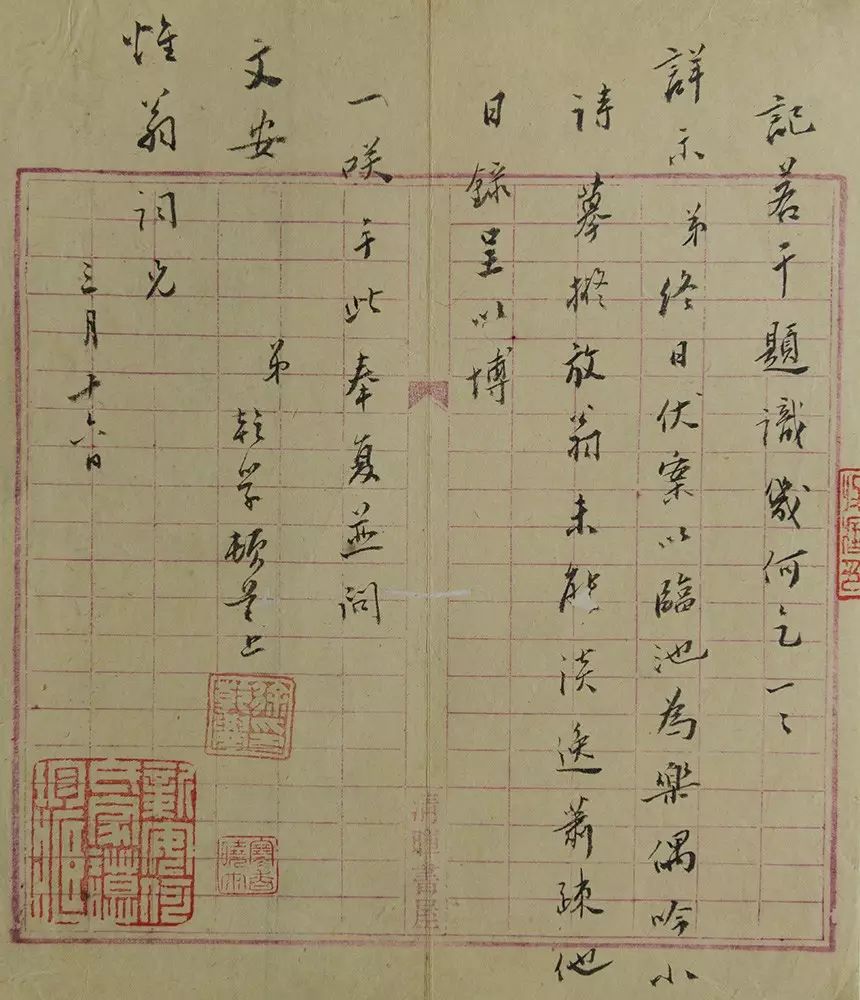 記若干題識幾何乞一々
詳示弟終日伏案以臨池為樂偶吟小
詩摹擬放翁未能淡逸蕭疎他
日錄呈以博
一咲耑此奉复並問
文安
弟乾學頓首上
惟翁詞兄
三月十六日
清暉書屋